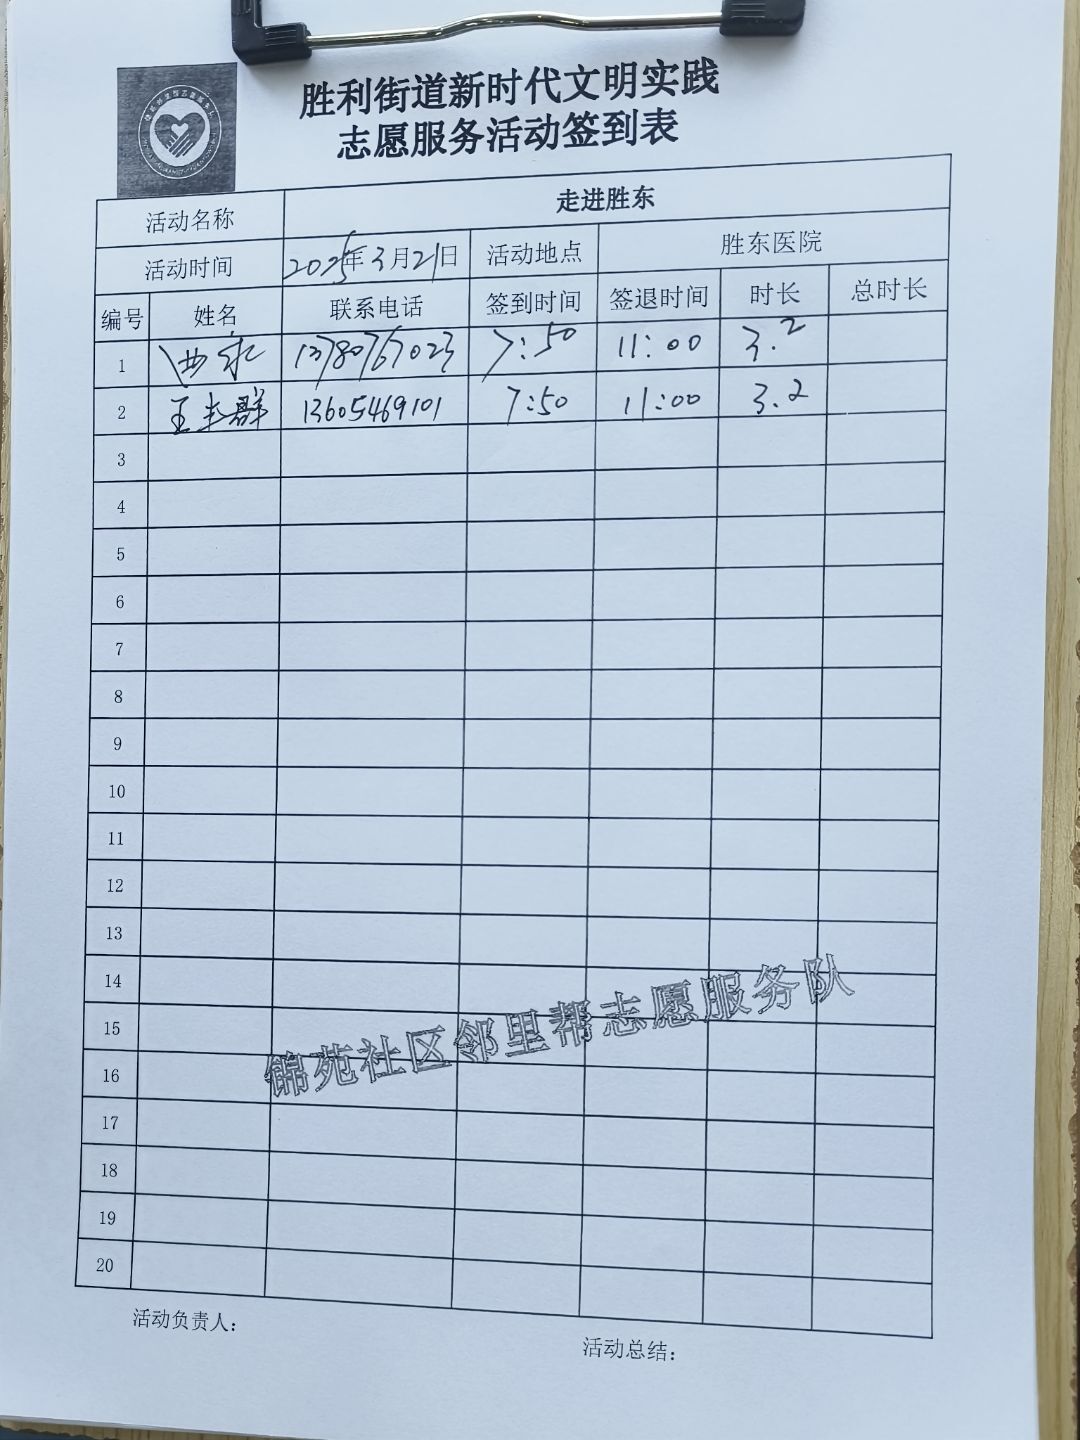 胜利街道新时代文明实践
志愿服务活动签到表
活动名称 走进胜东
活动时间 2025年3月21日 活动地点 胜东医院
编号 姓名 联系电话 签到时间 签退时间 时长 总时长
1 13780767023 7:50 11:00 3.2
2 王丰群 13605469101 7:50 11:00 3.2
3
4
5
6
7
8
9
10
11
12
13
14
15
16
17
18
19
20
锦苑社区邻里帮志愿服务队
活动负责人:
活动总结: